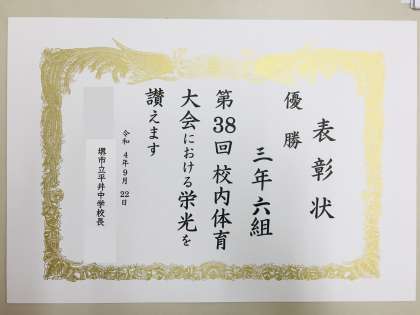 表彰状
優勝
三年六組
第38回 校内体育
大会における栄光を
讃えます
令和 4年9月 22日
堺市立平井中学校長